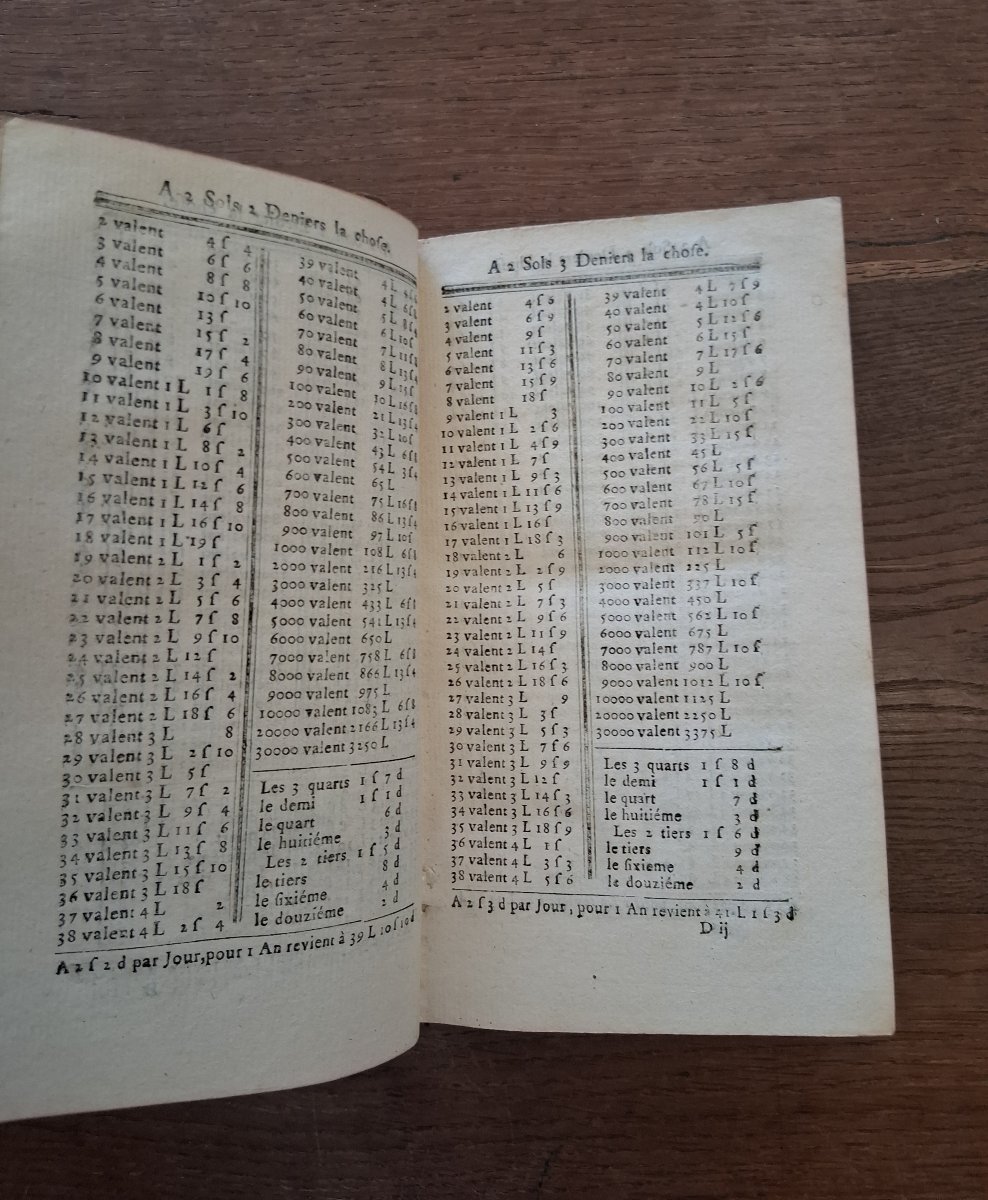 A 2 Sols 2 Deniers la choſe.
2 valent 4 ſ 4
3 valent 6 ſ 6
4 valent 8 ſ 8
5 valent 10 ſ 10
6 valent 13 ſ
7 valent 15 ſ 2
8 valent 17 ſ 4
9 valent 19 ſ 6
10 valent 1 L 1 ſ 8
11 valent 1 L 3 ſ 10
12 valent 1 L 6 ſ
13 valent 1 L 8 ſ 2
14 valent 1 L 10 ſ 4
15 valent 1 L 12 ſ 6
16 valent 1 L 14 ſ 8
17 valent 1 L 16 ſ 10
18 valent 1 L 19 ſ
19 valent 2 L 1 ſ 2
20 valent 2 L 3 ſ 4
21 valent 2 L 5 ſ 6
22 valent 2 L 7 ſ 8
23 valent 2 L 9 ſ 10
24 valent 2 L 12 ſ
25 valent 2 L 14 ſ 2
26 valent 2 L 16 ſ 4
27 valent 2 L 18 ſ 6
28 valent 3 L 8
29 valent 3 L 2 ſ 10
30 valent 3 L 5 ſ
31 valent 3 L 7 ſ 2
32 valent 3 L 9 ſ 4
33 valent 3 L 11 ſ 6
34 valent 3 L 13 ſ 8
35 valent 3 L 15 ſ 10
36 valent 3 L 18 ſ
37 valent 4 L 2
38 valent 4 L 2 ſ 4
39 valent 4 L 4ſ6
40 valent 4 L 6ſ8
50 valent 5 L 8ſ4
60 valent 6 L 10ſ
70 valent 7 L 11ſ8
80 valent 8 L 13ſ4
90 valent 9 L 15ſ
100 valent 10 L 16ſ8
200 valent 21 L 13ſ4
300 valent 32 L 10ſ
400 valent 43 L 6ſ8
500 valent 54 L 3ſ4
600 valent 65 L
700 valent 75 L 16ſ8
800 valent 86 L 13ſ4
900 valent 97 L 10ſ
1000 valent 108 L 6ſ8
2000 valent 216 L 13ſ4
3000 valent 325 L
4000 valent 433 L 6ſ8
5000 valent 541 L 13ſ4
6000 valent 650 L
7000 valent 758 L 6ſ8
8000 valent 866 L 13ſ4
9000 valent 975 L
10000 valent 1083 L 6ſ8
20000 valent 2166 L 13ſ4
30000 valent 3250 L
Les 3 quarts 1 ſ 7 d
le demi 1 ſ 1 d
le quart 6 d
le huitiéme 3 d
Les 2 tiers 1 ſ 5 d
le tiers 8 d
le ſixiéme 4 d
le douziéme 2 d
A 2 ſ 2 d par Jour, pour 1 An revient à 39 L 10 ſ 10 d
A 2 Sols 3 Deniers la choſe.
2 valent 4 ſ 6
3 valent 6 ſ 9
4 valent 9 ſ
5 valent 11 ſ 3
6 valent 13 ſ 6
7 valent 15 ſ 9
8 valent 18 ſ
9 valent 1 L 3
10 valent 1 L 2 ſ 6
11 valent 1 L 4 ſ 9
12 valent 1 L 7 ſ
13 valent 1 L 9 ſ 3
14 valent 1 L 11 ſ 6
15 valent 1 L 13 ſ 9
16 valent 1 L 16 ſ
17 valent 1 L 18 ſ 3
18 valent 2 L 6
19 valent 2 L 2 ſ 9
20 valent 2 L 5 ſ
21 valent 2 L 7 ſ 3
22 valent 2 L 9 ſ 6
23 valent 2 L 11 ſ 9
24 valent 2 L 14 ſ
25 valent 2 L 16 ſ 3
26 valent 2 L 18 ſ 6
27 valent 3 L 9
28 valent 3 L 3 ſ
29 valent 3 L 5 ſ 3
30 valent 3 L 7 ſ 6
31 valent 3 L 9 ſ 9
32 valent 3 L 12 ſ
33 valent 3 L 14 ſ 3
34 valent 3 L 16 ſ 6
35 valent 3 L 18 ſ 9
36 valent 4 L 1 ſ
37 valent 4 L 3 ſ 3
38 valent 4 L 5 ſ 6
39 valent 4 L 7 ſ 9
40 valent 4 L 10 ſ
50 valent 5 L 12 ſ 6
60 valent 6 L 15 ſ
70 valent 7 L 17 ſ 6
80 valent 9 L
90 valent 10 L 2 ſ 6
100 valent 11 L 5 ſ
200 valent 22 L 10 ſ
300 valent 33 L 15 ſ
400 valent 45 L
500 valent 56 L 5 ſ
600 valent 67 L 10 ſ
700 valent 78 L 15 ſ
800 valent 90 L
900 valent 101 L 5 ſ
1000 valent 112 L 10 ſ
2000 valent 225 L
3000 valent 337 L 10 ſ
4000 valent 450 L
5000 valent 562 L 10 ſ
6000 valent 675 L
7000 valent 787 L 10 ſ
8000 valent 900 L
9000 valent 1012 L 10 ſ
10000 valent 1125 L
20000 valent 2250 L
30000 valent 3375 L
Les 3 quarts 1 ſ 8 d
le demi 1 ſ 1 d
le quart 7 d
le huitiéme 3 d
Les 2 tiers 1 ſ 6 d
le tiers 9 d
le ſixieme 4 d
le douziéme 2 d
A 2 ſ 3 d par Jour, pour 1 An revient à 41 L 1 ſ 3 d
D ij